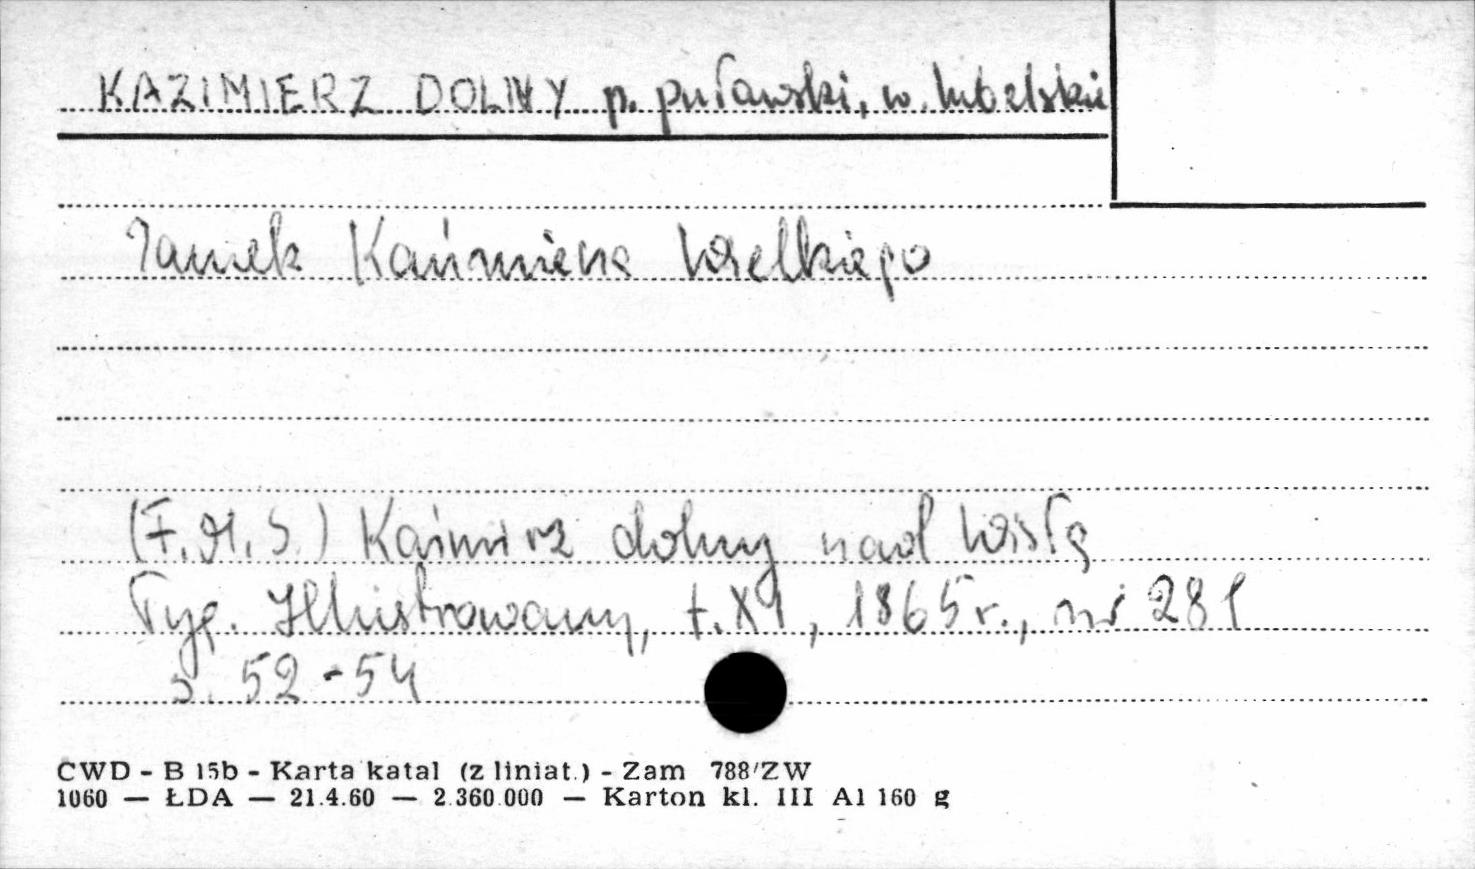 KAZIMIERZ DOLNY p. puławski, w. lubelskie
Zamek Kazimierza Wielkiego
(F.M.S.) Kazimirz dolny nad Wisłą
Tyg. Illustrowany, t. XI, 1865 r., nr 281
s. 52-54
CWD - B 15b - Karta katal (z liniat.) - Zam 788/ZW
1060 — ŁDA — 21.4.60 — 2.360.000 — Karton kl. III A1 160 g